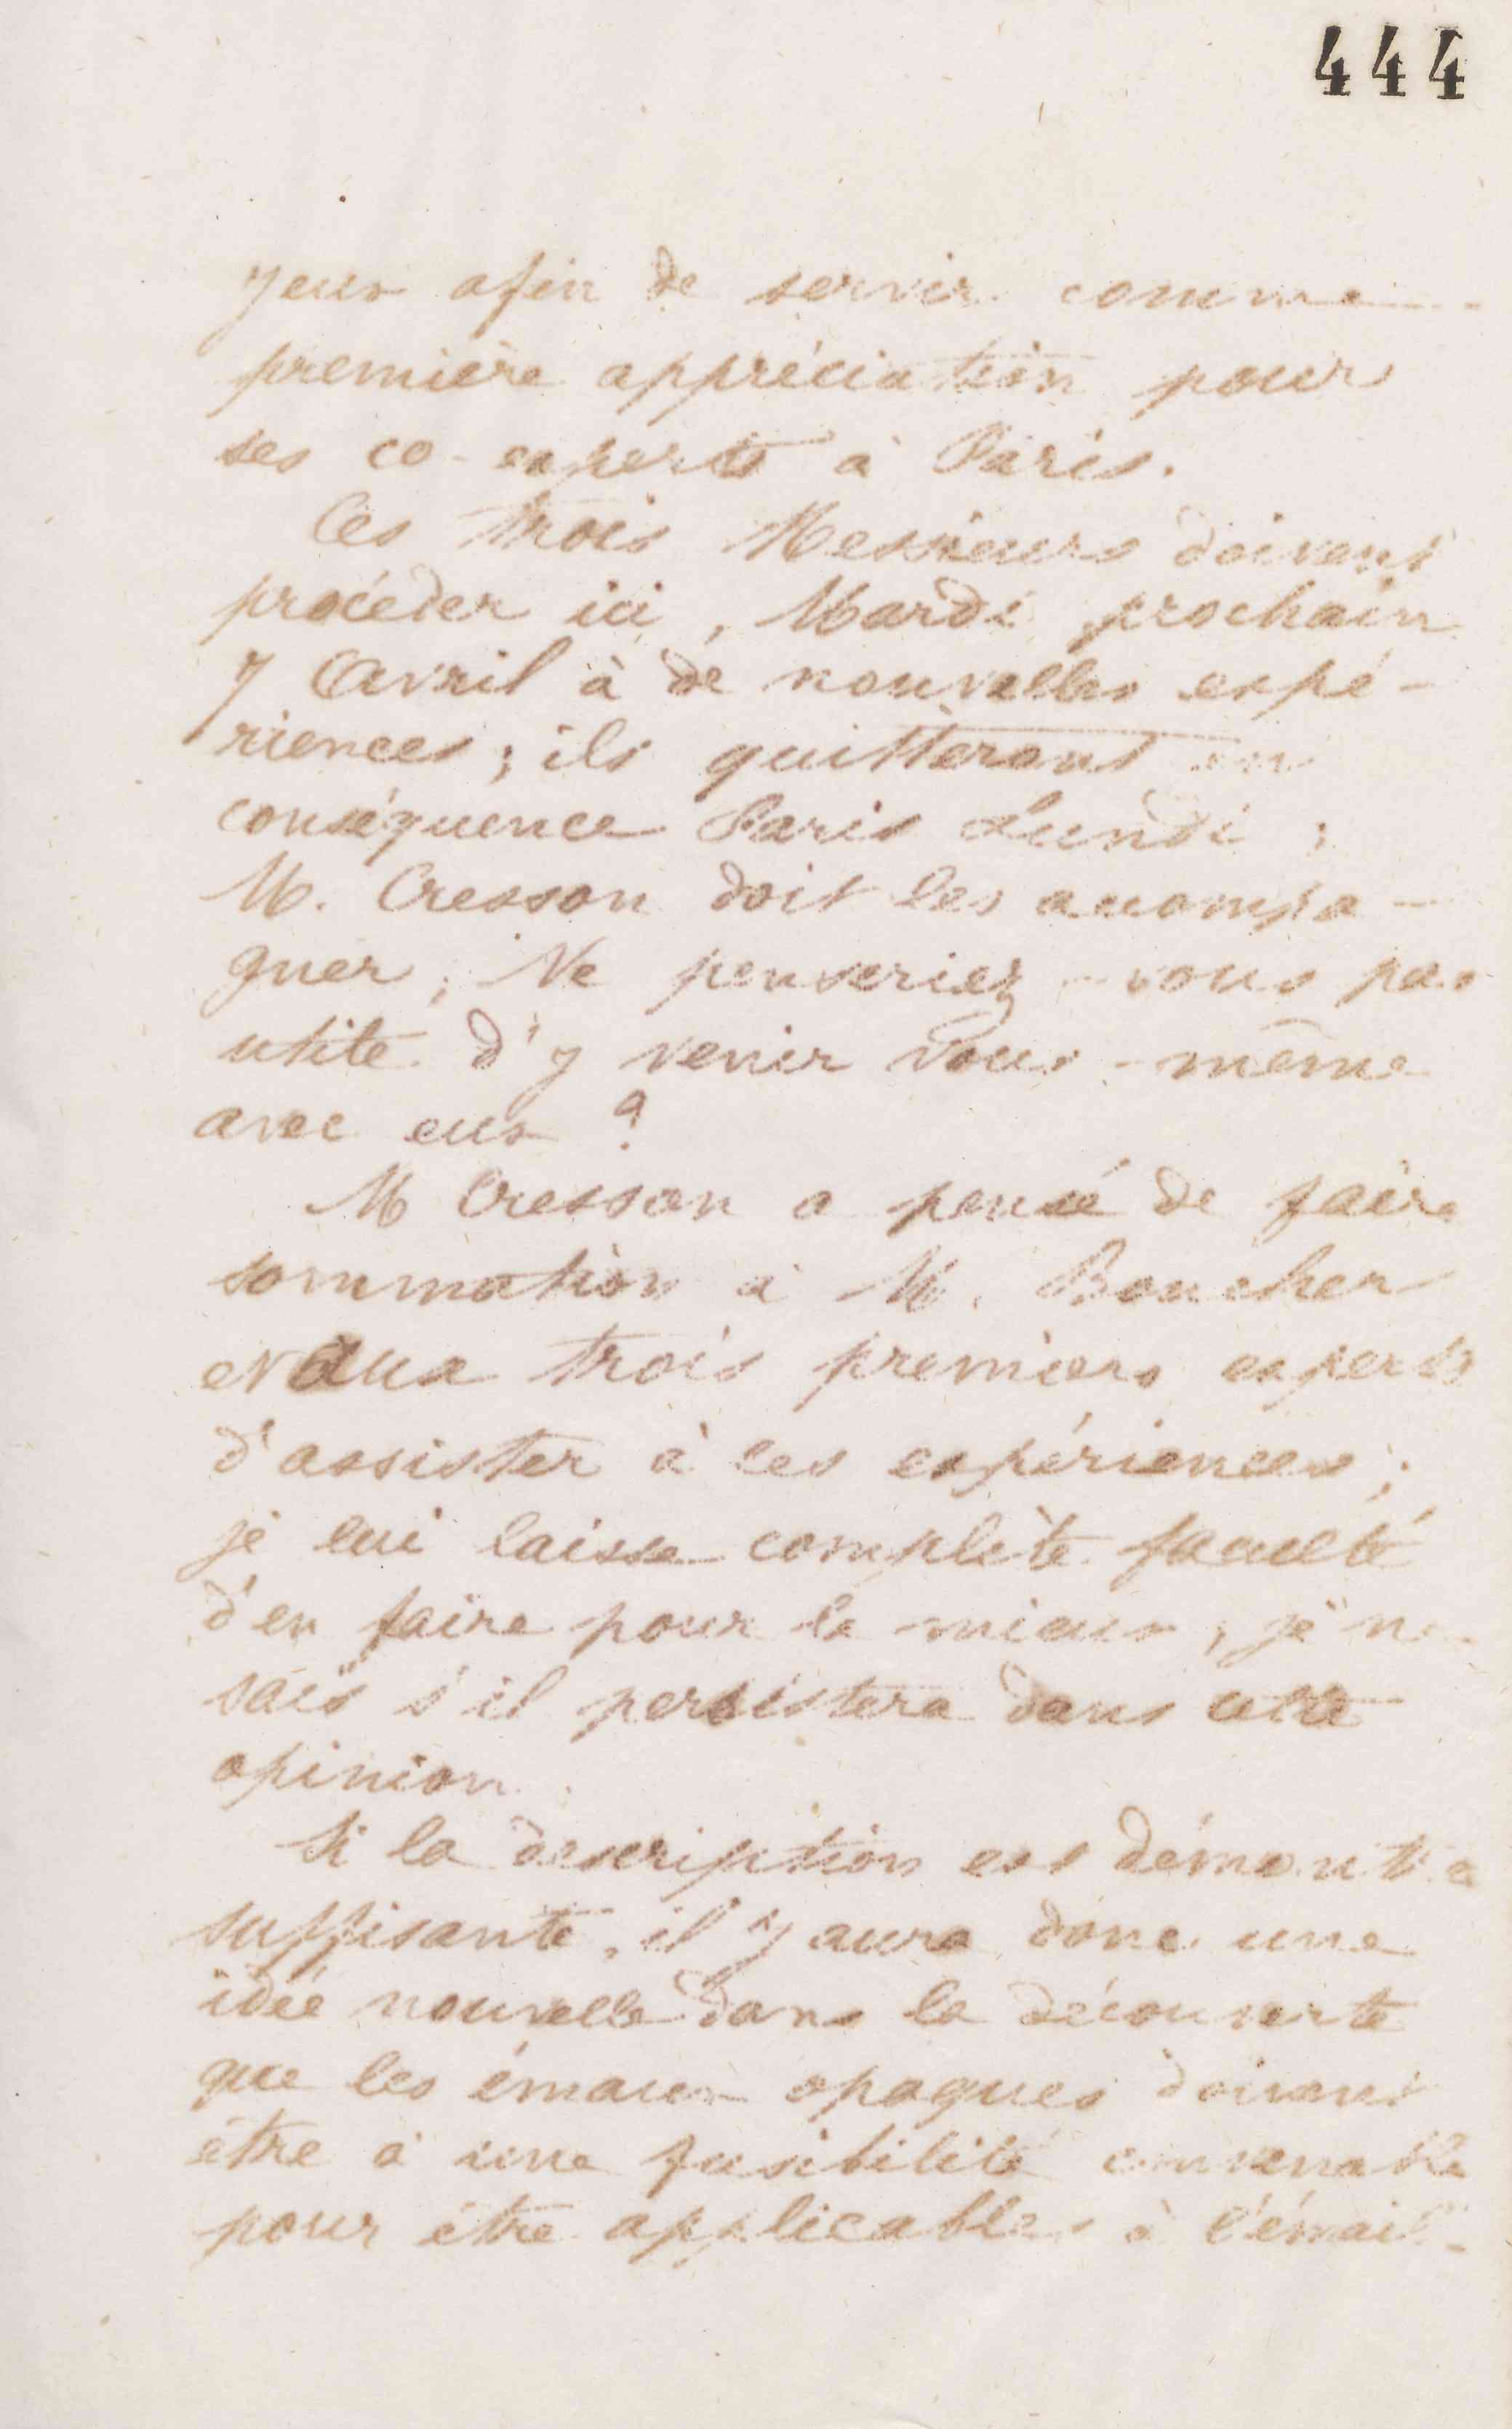 444
yeux afin de servir comme
première appréciation pour
ses co-experts à Paris.
Ces trois Messieurs doivent
procéder ici, Mardi prochain
7 Avril à de nouvelles expé-
riences; ils quitteront en
conséquence Paris Lundi;
M. Cresson doit les accompa-
gner; Ne penseriez-vous pas
utile d'y venir vous-même
avec eux ?
M Cresson a pensé de faire
sommation à M. Boucher
et aux trois premiers experts
d'assister à ces expériences;
je lui laisse complète faculté
d'en faire pour le mieux, je ne
sais s'il persistera dans cette
opinion.
Si la description est démontrée
suffisante, il y aura donc une
idée nouvelle dans la découverte
que les émaux opaques doivent
être à une fusibilité convenable
pour être applicables à l'émail-